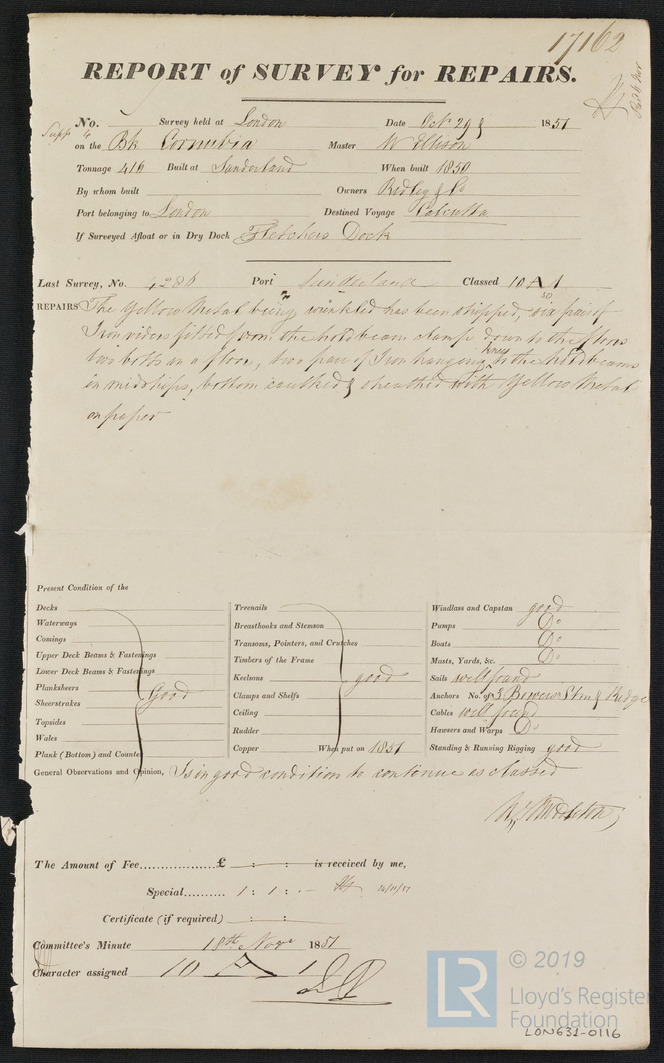 17162
REPORT of SURVEY for REPAIRS.
No. Survey held at London Date Octr 29 1851
on the Bk Cornubia Master W Ellison
Tonnage 416 Built at Sunderland When built 1850
By whom built Owners Ridley & Co
Port belonging to London Destined Voyage Calcutta
If Surveyed Afloat or in Dry Dock Fletchers Dock
Last Survey, No. 4286 Port Sunderland Classed 10 A 1
50
REPAIRS The Yellow Metal being wrinkled has been stripped, six pair of
Iron riders fitted from the hold beam clamp down to the floors
two bolts in a floor, two pair of Iron hanging knees to the hold beams
in midships, bottom caulked & sheathed with Yellow Metal
on paper
Present Condition of the
Decks
Waterways
Comings
Upper Deck Beams & Fastenings
Lower Deck Beams & Fastenings
Planksheers Good
Sheerstrakes
Topsides
Wales
Plank (Bottom) and Counter
Treenails
Breasthooks and Stemson
Transoms, Pointers, and Crutches
Timbers of the Frame
Keelsons good
Clamps and Shelfs
Ceiling
Rudder
Copper When put on 1851
Windlass and Capstan good
Pumps Do
Boats Do
Masts, Yards, &c. Do
Sails well found
Anchors No. of 3 Bowers Stream & Kedge
Cables well found
Hawsers and Warps Do
Standing & Running Rigging good
General Observations and Opinion, Is in good condition to continue as classed
The Amount of Fee £ : : is received by me,
Special 1 : 1 : -
Certificate (if required) : :
Committee's Minute 18th Novr 1851
Character assigned 10 A 1
LR
© 2019
Lloyd's Register
Foundation
LON631-0116